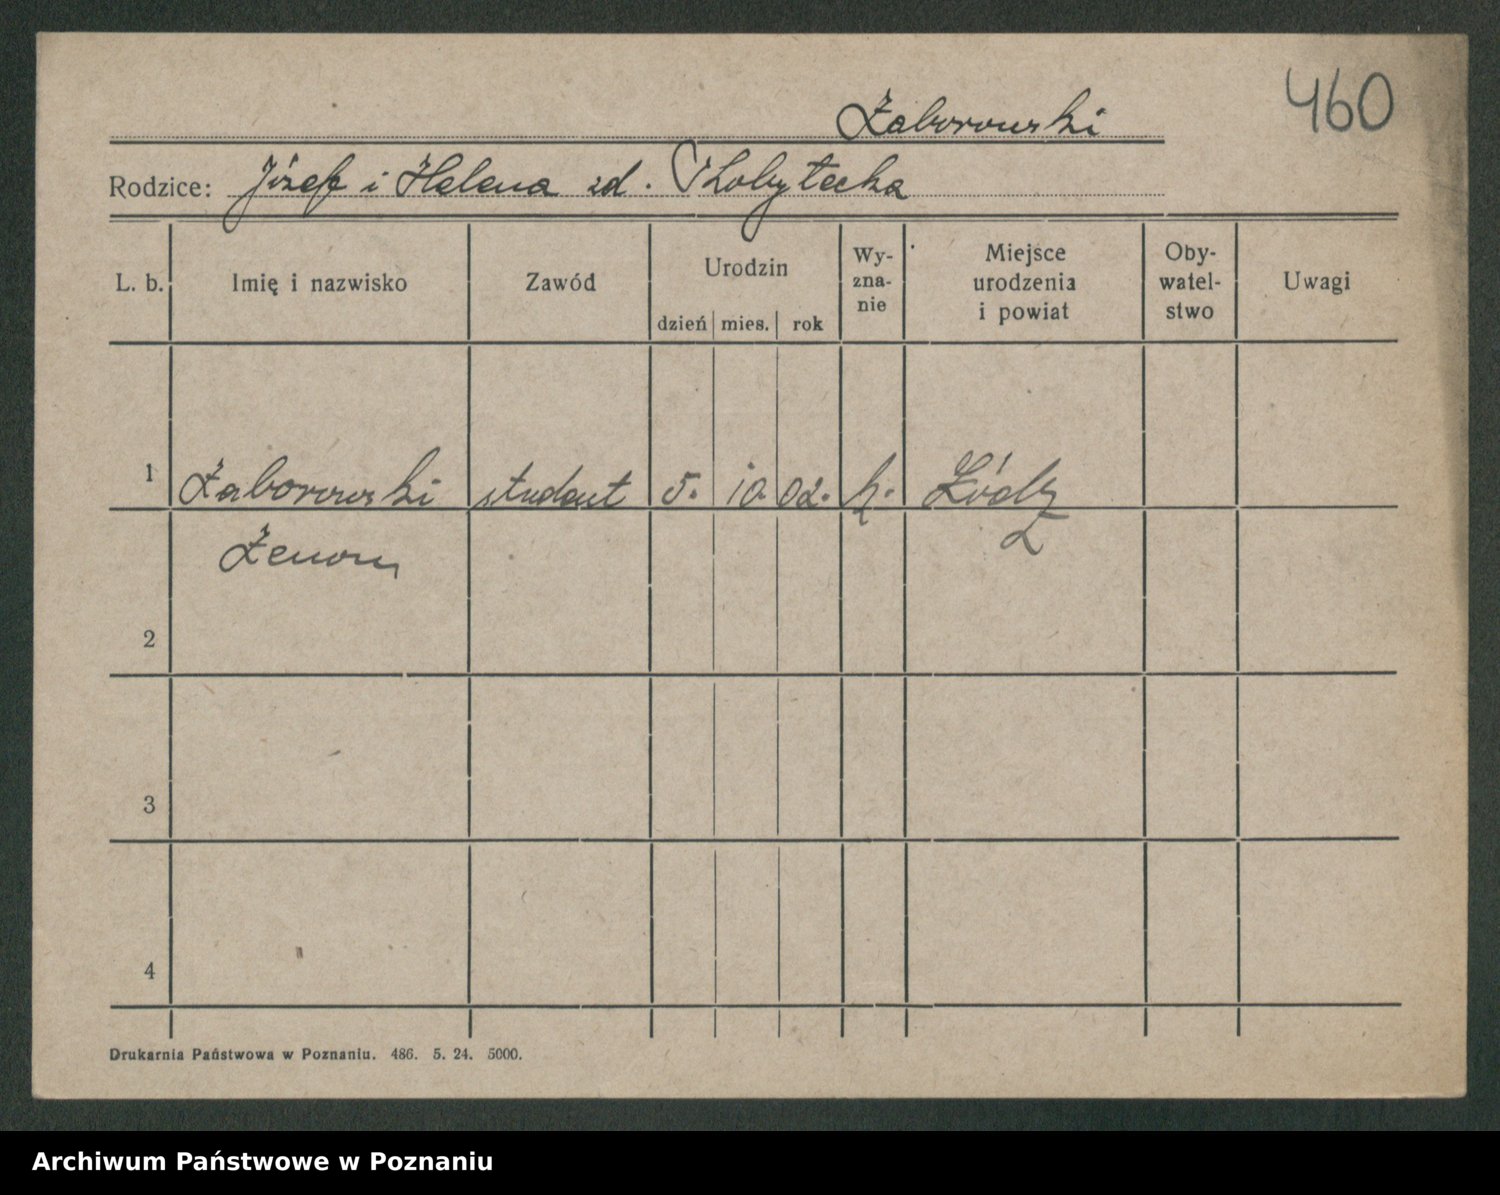 460
Zaborowski
Rodzice: Józef i Helena zd.
L. b. Imię i nazwisko Zawód Urodzin dzień mies. rok Wy- zna- nie Miejsce urodzenia i powiat Oby- watel- stwo Uwagi
1 Zaborowski student 5. 10. 02. k. Łódź
Zenon
2
3
4
Drukarnia Państwowa w Poznaniu. 486. 5. 24. 5000.
Archiwum Państwowe w Poznaniu